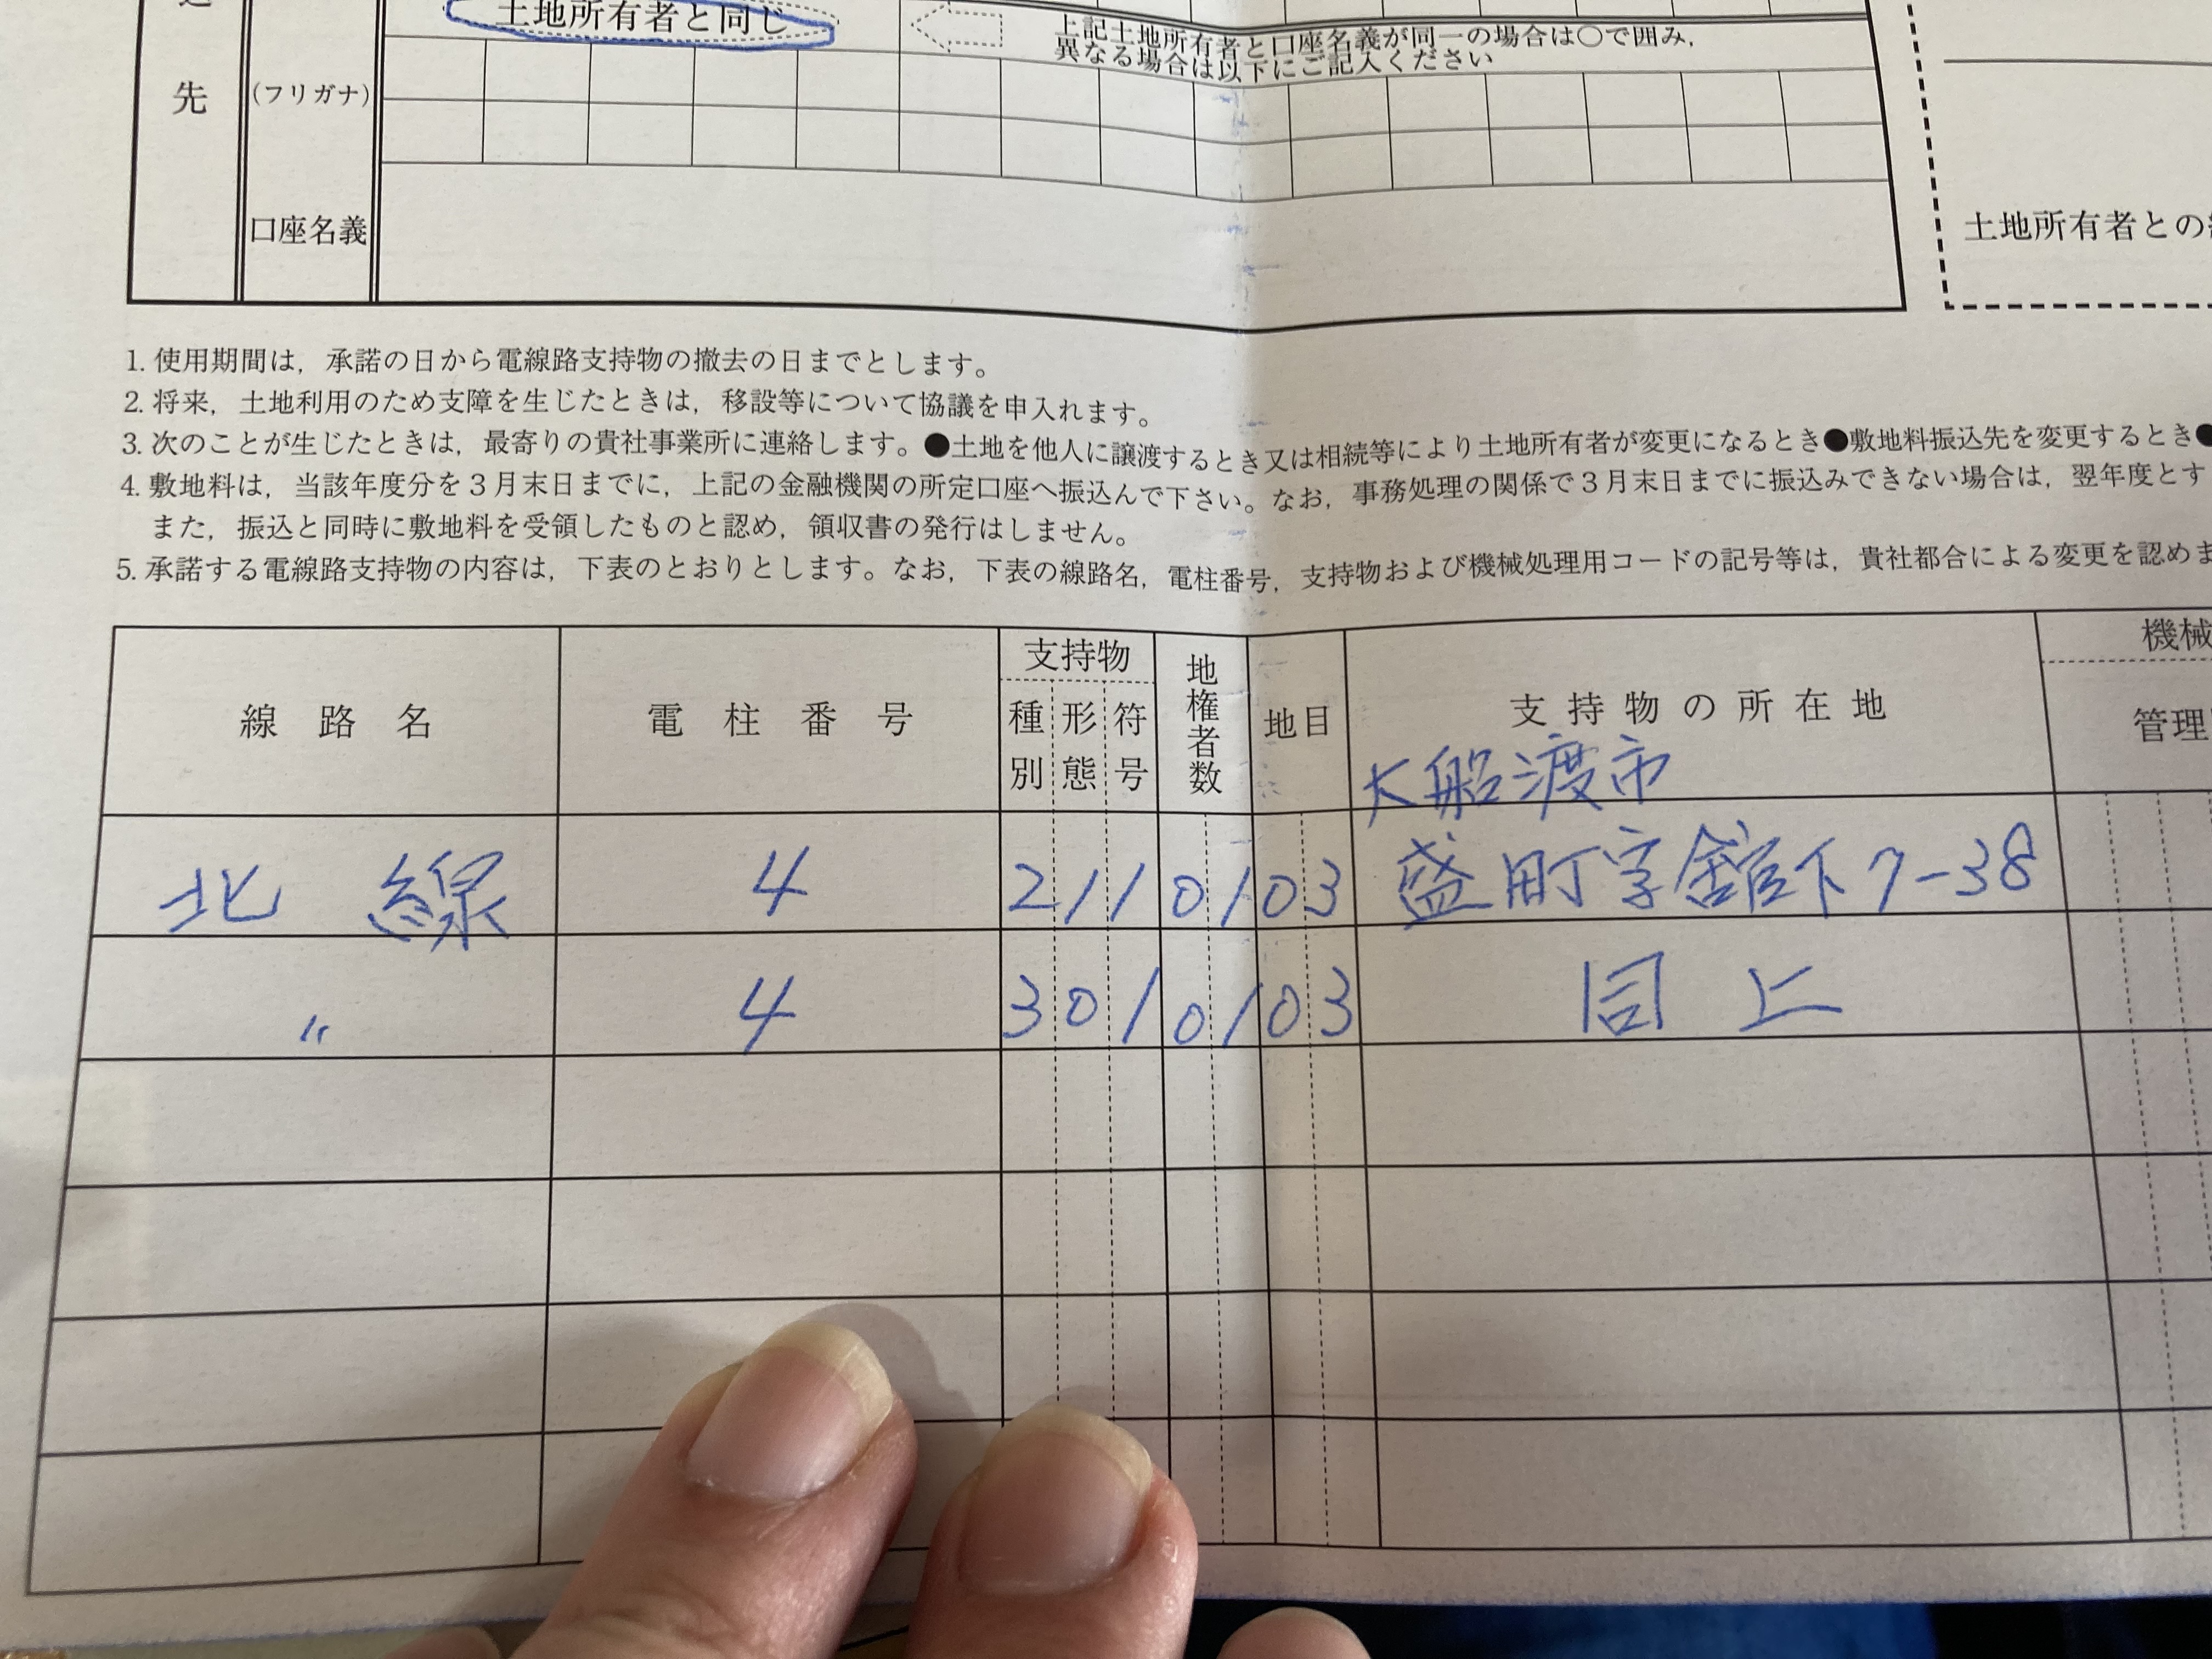 土地所有者と同じ
上記土地所有者と口座名義が同一の場合は○で囲み，
異なる場合は以下にご記入ください
先
(フリガナ)
口座名義
土地所有者との
1. 使用期間は，承諾の日から電線路支持物の撤去の日までとします。
2. 将来，土地利用のため支障を生じたときは，移設等について協議を申入れます。
3. 次のことが生じたときは，最寄りの貴社事業所に連絡します。●土地を他人に譲渡するとき又は相続等により土地所有者が変更になるとき●敷地料振込先を変更するとき●
4. 敷地料は，当該年度分を3月末日までに，上記の金融機関の所定口座へ振込んで下さい。なお，事務処理の関係で3月末日までに振込みできない場合は，翌年度とす
また，振込と同時に敷地料を受領したものと認め，領収書の発行はしません。
5. 承諾する電線路支持物の内容は，下表のとおりとします。なお，下表の線路名，電柱番号，支持物および機械処理用コードの記号等は，貴社都合による変更を認めま
線路名 電柱番号 支持物 種別 形態 符号 地権者数 地目 支持物の所在地 機械 管理
大船渡市
北線 4 2 1 1 0 1 0 3 盛町字舘下7-38
〃 4 3 0 1 0 1 0 3 同上